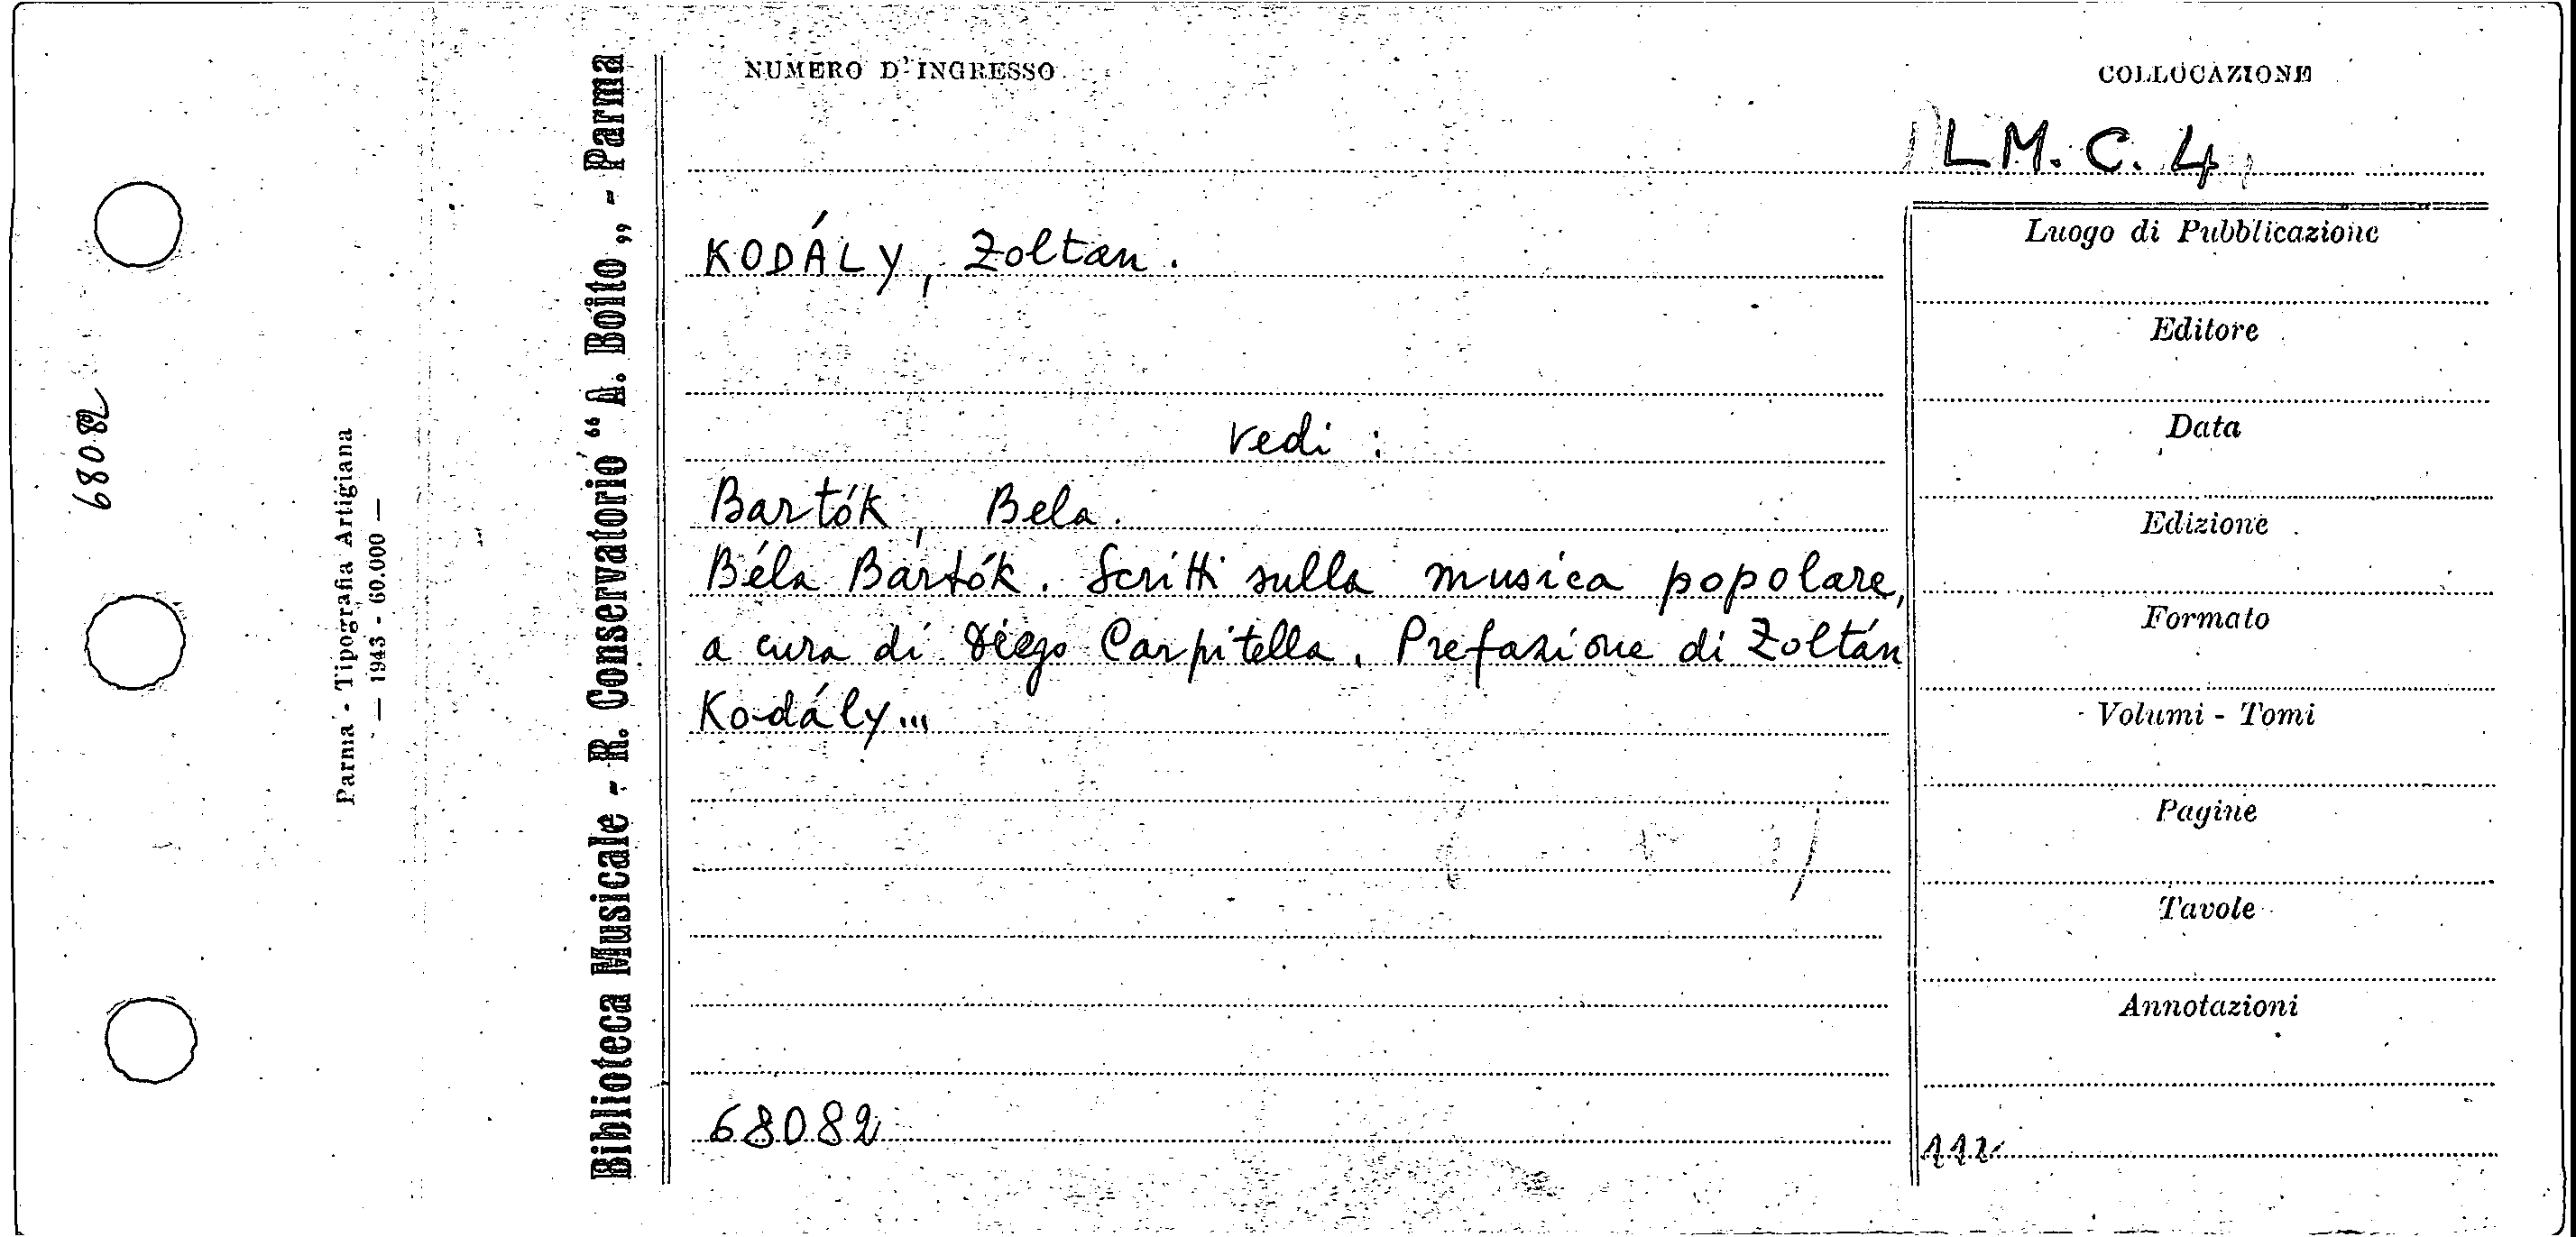 68082
Parma - Tipografia Artigiana
— 1943 - 60.000 —
Biblioteca Musicale - R. Conservatorio “A. Boito„ - Parma
NUMERO D'INGRESSO
COLLOCAZIONE
LM. C. 4
KODÁLY, Zoltan.
vedi :
Bartók, Bela.
Béla Bartók. Scritti sulla musica popolare,
a cura di Diego Carpitella. Prefazione di Zoltán
Kodály...
68082
Luogo di Pubblicazione
Editore
Data
Edizione
Formato
Volumi - Tomi
Pagine
Tavole
Annotazioni